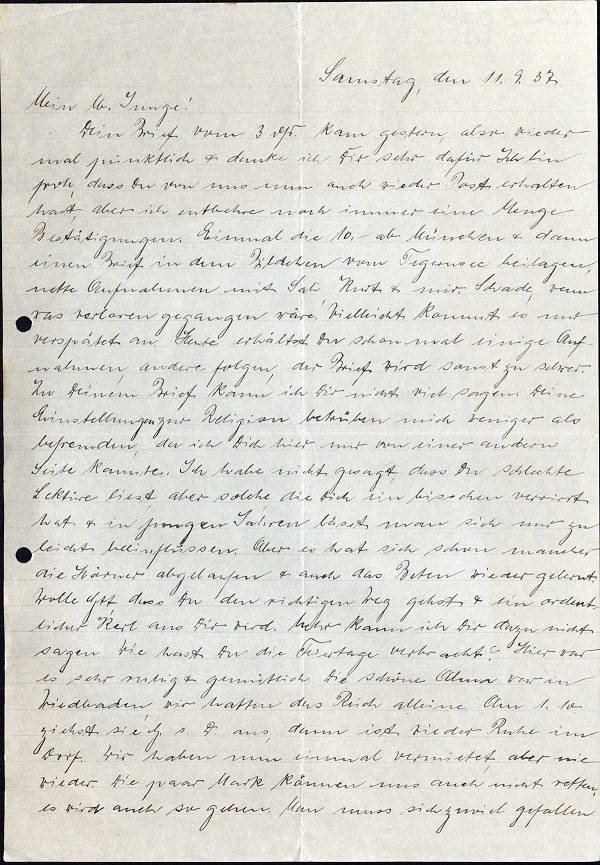 Samstag, den 11.9.37
Mein lb. Junge!
Dein Brief vom 3 ds. kam gestern, also wieder
mal pünktlich & danke ich Dir sehr dafür. Ich bin
froh, dass Du von uns nun auch wieder Post erhalten
hast, aber ich entbehre noch immer eine Menge
Bestätigungen. Einmal die 10,- ab München & dann
einen Brief in dem Bildchen vom Tegernsee beilagen,
nette Aufnahmen mit Kurt & mir. Schade, wenn
was verloren gegangen wäre! Vielleicht kommt es nur
verspätet an. Heute erhältst Du schon mal einige Auf-
nahmen, andere folgen, der Brief wird sonst zu schwer.
Zu Deinem Brief kann ich Dir nicht viel sagen. Deine
Einstellungen zur Religion betrüben mich weniger als
befremden, da ich Dich hier nur von einer andern
Seite kannte. Ich habe nicht gesagt, dass Du schlechte
Lektüre liest, aber solche, die Dich ein bisschen verwirrt
hat & in jungen Jahren lässt man sich nur zu
leicht beeinflussen. Aber es hat sich schon mancher
die Hörner abgelaufen & auch das Beten wieder gelernt.
Wolle Gott, dass Du den richtigen Weg gehst & ein ordent-
licher Kerl aus Dir wird. Mehr kann ich Dir dazu nicht
sagen. Wie hast Du die Feiertage verbracht? Hier war
es sehr ruhig & gemütlich. Die schöne Alma war in
Wiesbaden, wir hatten das Reich alleine. Am 1. 10
zieht sie, G. s. D. aus, dann ist wieder Ruhe im
Dorf. Wir haben nun einmal vermietet, aber nie
wieder. Die paar Mark können uns auch nicht retten,
es wird auch so gehen. Man muss sich zuviel gefallen